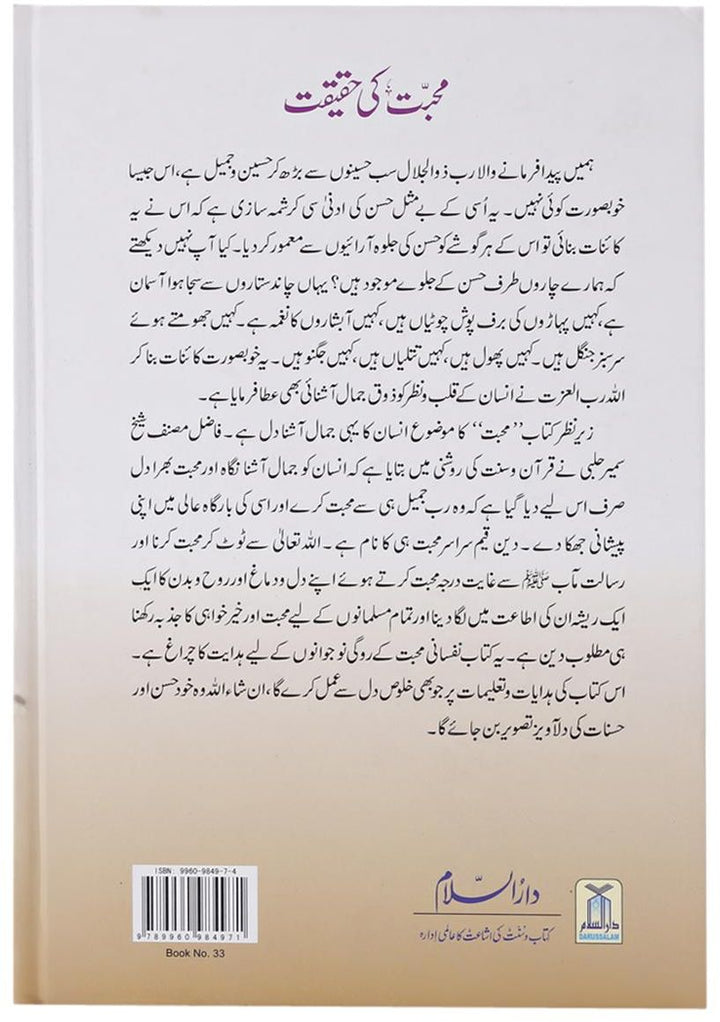 محبّت کی حقیقت
ہمیں پیدا فرمانے والا رب ذوالجلال سب حسینوں سے بڑھ کر حسین و جمیل ہے، اس جیسا
خوبصورت کوئی نہیں۔ یہ اُسی کے بے مثل حسن کی ادنیٰ سی کرشمہ سازی ہے کہ اس نے یہ
کائنات بنائی تو اس کے ہر گوشے کو حسن کی جلوہ آرائیوں سے معمور کر دیا۔ کیا آپ نہیں دیکھتے
کہ ہمارے چاروں طرف حسن کے جلوے موجود ہیں؟ یہاں چاند ستاروں سے سجا ہوا آسمان
ہے، کہیں پہاڑوں کی برف پوش چوٹیاں ہیں، کہیں آبشاروں کا نغمہ ہے۔ کہیں جھومتے ہوئے
سرسبز جنگل ہیں۔ کہیں پھول ہیں، کہیں تتلیاں ہیں، کہیں جگنو ہیں۔ یہ خوبصورت کائنات بنا کر
اللہ رب العزت نے انسان کے قلب و نظر کو ذوق جمال آشنائی بھی عطا فرمایا ہے۔
زیر نظر کتاب ”محبت“ کا موضوع انسان کا یہی جمال آشنا دل ہے۔ فاضل مصنف شیخ
سمیر حلبی نے قرآن و سنت کی روشنی میں بتایا ہے کہ انسان کو جمال آشنا نگاہ اور محبت بھرا دل
صرف اس لیے دیا گیا ہے کہ وہ رب جمیل ہی سے محبت کرے اور اسی کی بارگاہ عالی میں اپنی
پیشانی جھکا دے۔ دین قیم سراسر محبت ہی کا نام ہے۔ اللہ تعالیٰ سے ٹوٹ کر محبت کرنا اور
رسالت مآب ﷺ سے غایت درجہ محبت کرتے ہوئے اپنے دل و دماغ اور روح و بدن کا ایک
ایک ریشہ ان کی اطاعت میں لگا دینا اور تمام مسلمانوں کے لیے محبت اور خیر خواہی کا جذبہ رکھنا
ہی مطلوب دین ہے۔ یہ کتاب نفسانی محبت کے روگی نوجوانوں کے لیے ہدایت کا چراغ ہے۔
اس کتاب کی ہدایات و تعلیمات پر جو بھی خلوص دل سے عمل کرے گا، ان شاء اللہ وہ خود حسن اور
حسنات کی دلآویز تصویر بن جائے گا۔
ISBN: 9960-9849-7-4
9 789960 984971
Book No. 33
دارُالسّلام
کتاب و سنّت کی اشاعت کا عالمی ادارہ
دارالسلام
DARUSSALAM